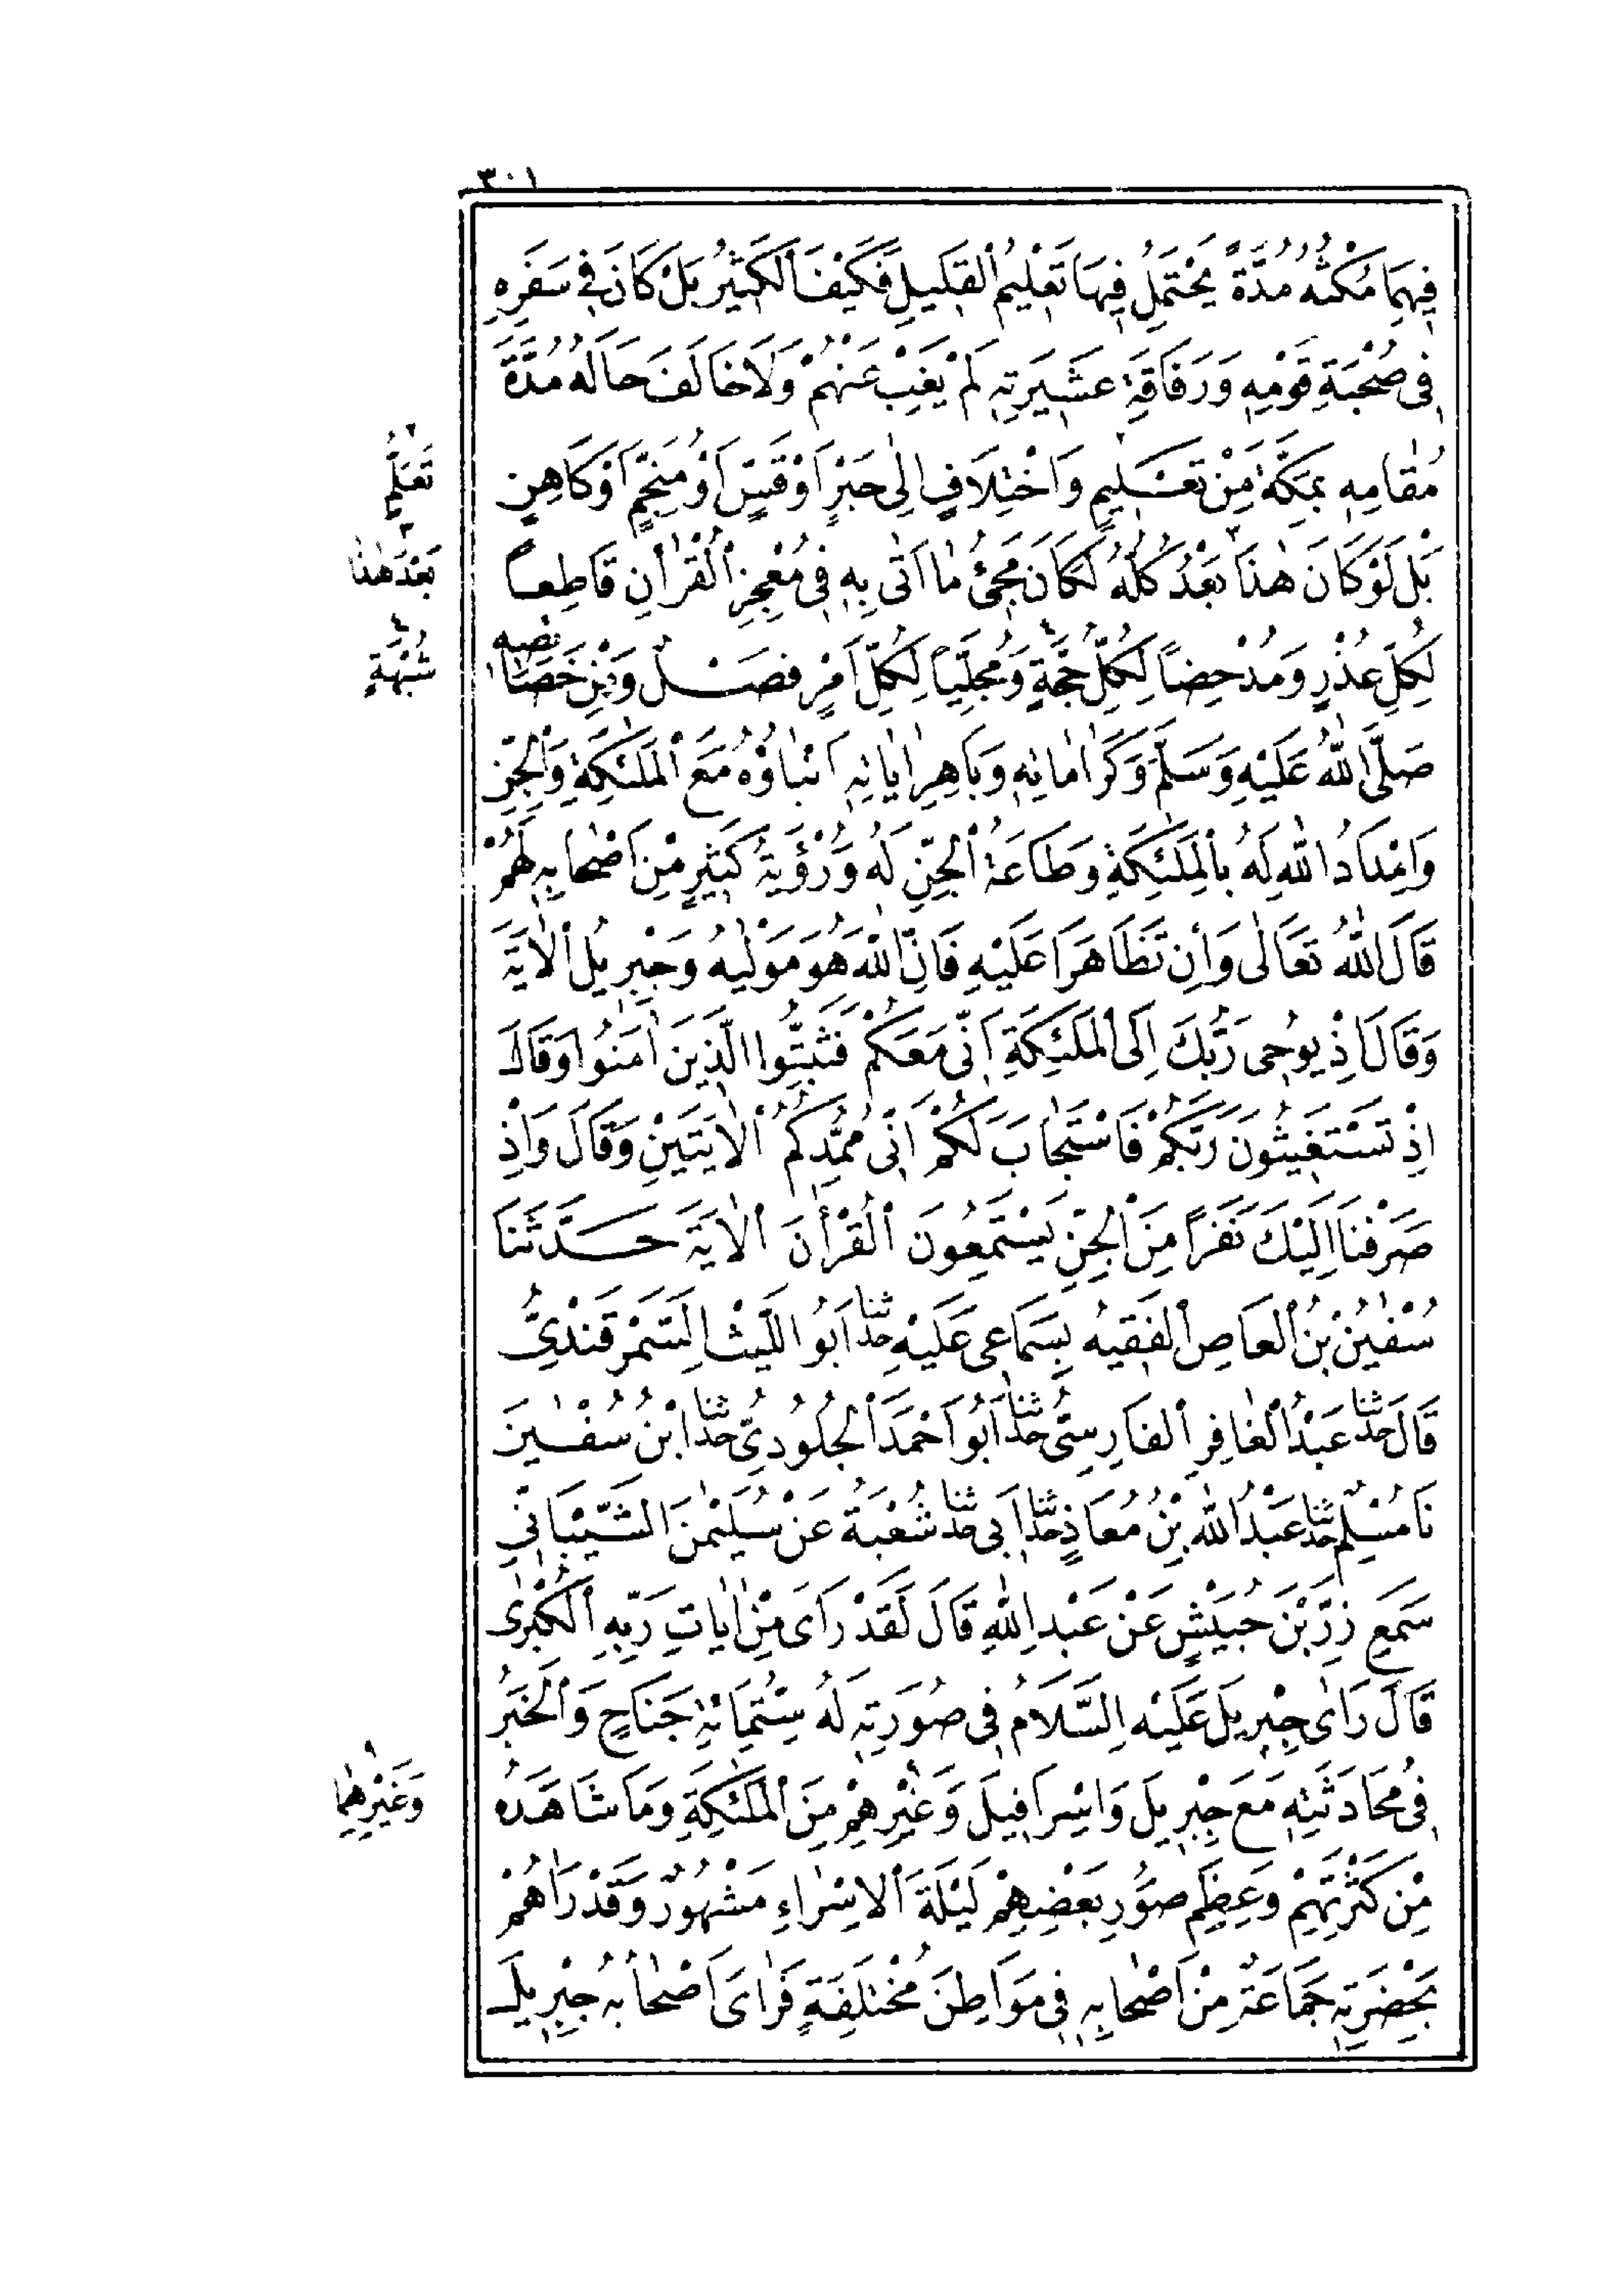 ٣٠١
فِيهِمَا مُكْثُهُ مُدَّةً يَحْتَمِلُ فِيهَا تَعْلِيمُ الْقَلِيلِ فَكَيْفَ الْكَثِيرُ بَلْ كَانَ فِي سَفَرِهِ
فِي صُحْبَةِ قَوْمِهِ وَرَفَاقَةِ عَشِيرَتِهِ لَمْ يَغِبْ عَنْهُمْ وَلَا خَالَفَ حَالُهُ مُدَّةَ
مُقَامِهِ بِمَكَّةَ مِنْ تَعْلِيمٍ وَاخْتِلَافٍ إِلَى حَبْرٍ أَوْ قَسٍّ أَوْ مُنَجِّمٍ أَوْ كَاهِنٍ
بَلْ لَوْ كَانَ هٰذَا بَعْدُ كُلُّهُ لَكَانَ مَجِيءُ مَا أَتَى بِهِ فِي مُعْجِزِ الْقُرْاٰنِ قَاطِعاً
لِكُلِّ عُذْرٍ وَمُدْحِضاً لِكُلِّ حُجَّةٍ وَمُجَلِّياً لِكُلِّ أَمْرٍ فصل وَمِنْ خَصَائِصِهِ
صَلَّى اللهُ عَلَيْهِ وَسَلَّمَ وَكَرَامَاتِهِ وَبَاهِرِ اٰيَاتِهِ أَنْبَاؤُهُ مَعَ الْمَلٰئِكَةِ وَالْجِنِّ
وَإِمْدَادُ اللهِ لَهُ بِالْمَلٰئِكَةِ وَطَاعَةُ الْجِنِّ لَهُ وَرُؤْيَةُ كَثِيرٍ مِنْ أَصْحَابِهِ لَهُمْ
قَالَ اللهُ تَعَالٰى وَإِنْ تَظَاهَرَا عَلَيْهِ فَإِنَّ اللهَ هُوَ مَوْلٰيهُ وَجِبْرِيلُ الْاٰيَةَ
وَقَالَ إِذْ يُوحِي رَبُّكَ إِلَى الْمَلٰئِكَةِ أَنِّي مَعَكُمْ فَثَبِّتُوا الَّذِينَ اٰمَنُوا وَقَالَ
إِذْ تَسْتَغِيثُونَ رَبَّكُمْ فَاسْتَجَابَ لَكُمْ أَنِّي مُمِدُّكُمْ الْاٰيَتَيْنِ وَقَالَ وَإِذْ
صَرَفْنَا إِلَيْكَ نَفَراً مِنَ الْجِنِّ يَسْتَمِعُونَ الْقُرْأٰنَ الْاٰيَةَ حَدَّثَنَا
سُفْيٰنُ بْنُ الْعَاصِ الْفَقِيهُ بِسَمَاعِي عَلَيْهِ حدثنا أَبُو اللَّيْثِ السَّمَرْقَنْدِيُّ
قَالَ حدثنا عَبْدُ الْغَافِرِ الْفَارِسِيُّ حدثنا أَبُو أَحْمَدَ الْجُلُودِيُّ حدثنا ابْنُ سُفْيٰنَ
نَا مُسْلِمٌ حدثنا عَبْدُ اللهِ بْنُ مُعَاذٍ حدثنا أَبِي حدثنا شُعْبَةُ عَنْ سُلَيْمٰنَ الشَّيْبَانِيِّ
سَمِعَ زِرَّ بْنَ حُبَيْشٍ عَنْ عَبْدِ اللهِ قَالَ لَقَدْ رَأَى مِنْ اٰيَاتِ رَبِّهِ الْكُبْرٰى
قَالَ رَأَى جِبْرِيلَ عَلَيْهِ السَّلَامُ فِي صُورَتِهِ لَهُ سِتُّمِائَةِ جَنَاحٍ وَالْخَبَرُ
فِي مُحَادَثَتِهِ مَعَ جِبْرِيلَ وَإِسْرَافِيلَ وَغَيْرِهِمْ مِنَ الْمَلٰئِكَةِ وَمَا شَاهَدَهُ
مِنْ كَثْرَتِهِمْ وَعِظَمِ صُوَرِ بَعْضِهِمْ لَيْلَةَ الْاِسْرَاءِ مَشْهُورٌ وَقَدْ رَاٰهُمْ
بِحَضْرَتِهِ جَمَاعَةٌ مِنْ أَصْحَابِهِ فِي مَوَاطِنَ مُخْتَلِفَةٍ فَرَأَى أَصْحَابُهُ جِبْرِيلَ
تَعَلُّمٍ
بَعْدَ هٰذَا
شُبْهَةٍ
وَغَيْرِهِمَا